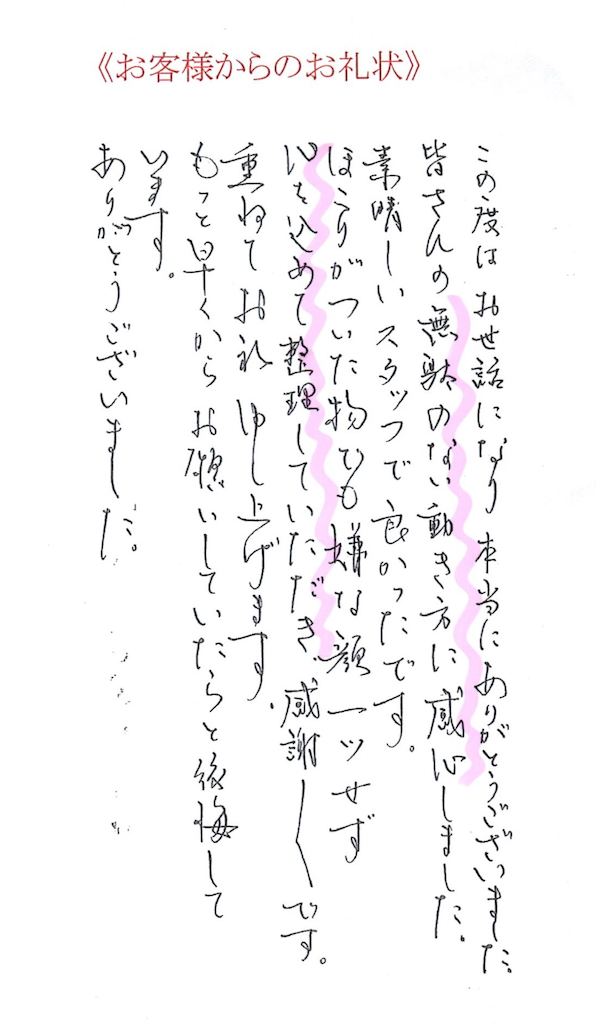 《お客様からのお礼状》
この度はお世話になり本当にありがとうございました。
皆さんの無駄のない動き方に感心しました。
素晴しいスタッフで良かったです。
ほこりがついた物でも嫌な顔一ツせず
心を込めて整理していただき感謝〱です。
重ねてお礼申し上げます。
もっと早くからお願いしていたらと後悔して
います。
ありがとうございました。